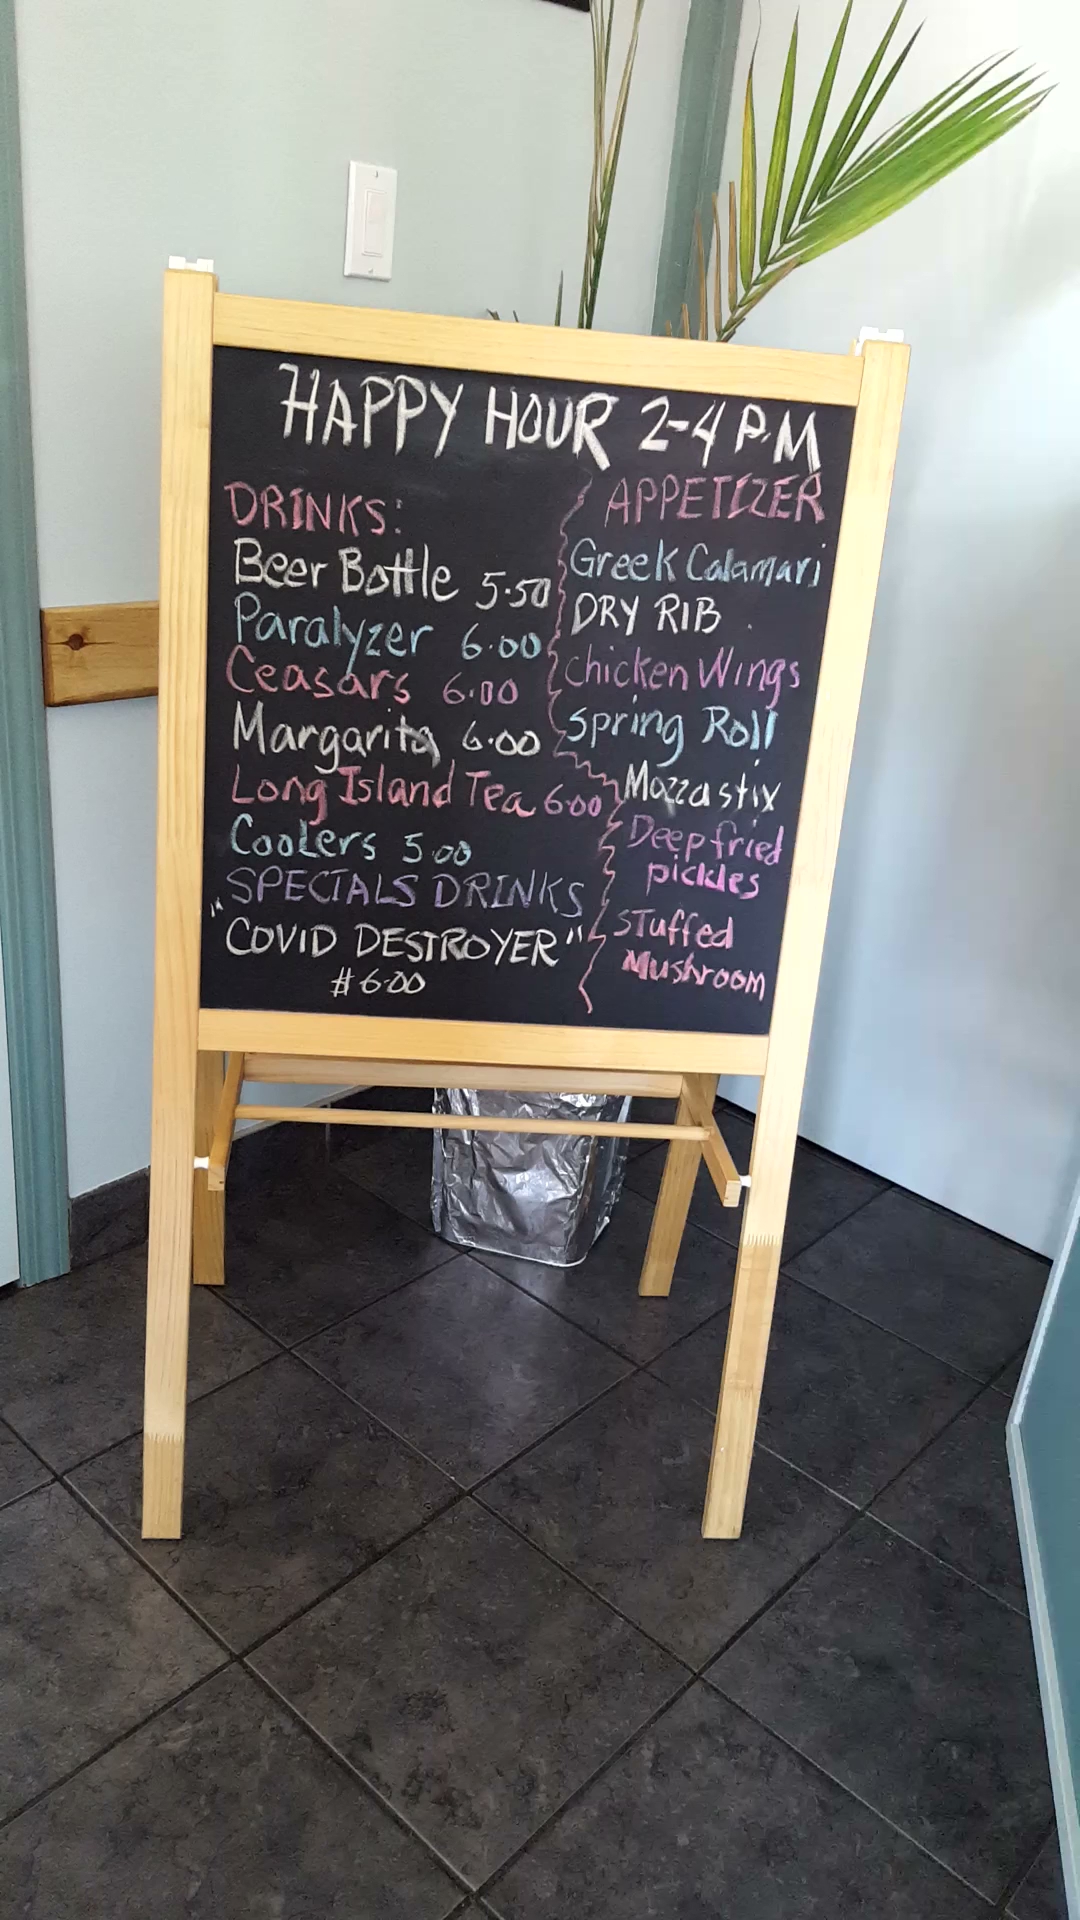 HAPPY HOUR 2-4 P.M
DRINKS:
Beer Bottle 5.50
Paralyzer 6.00
Ceasars 6.00
Margarita 6.00
Long Island Tea 6.00
Coolers 5.00
SPECIALS DRINKS
"COVID DESTROYER"
# 6.00
APPETIZER
Greek Calamari
DRY RIB
Chicken Wings
Spring Roll
Mozza stix
Deep fried
pickles
STuffed
Mushroom